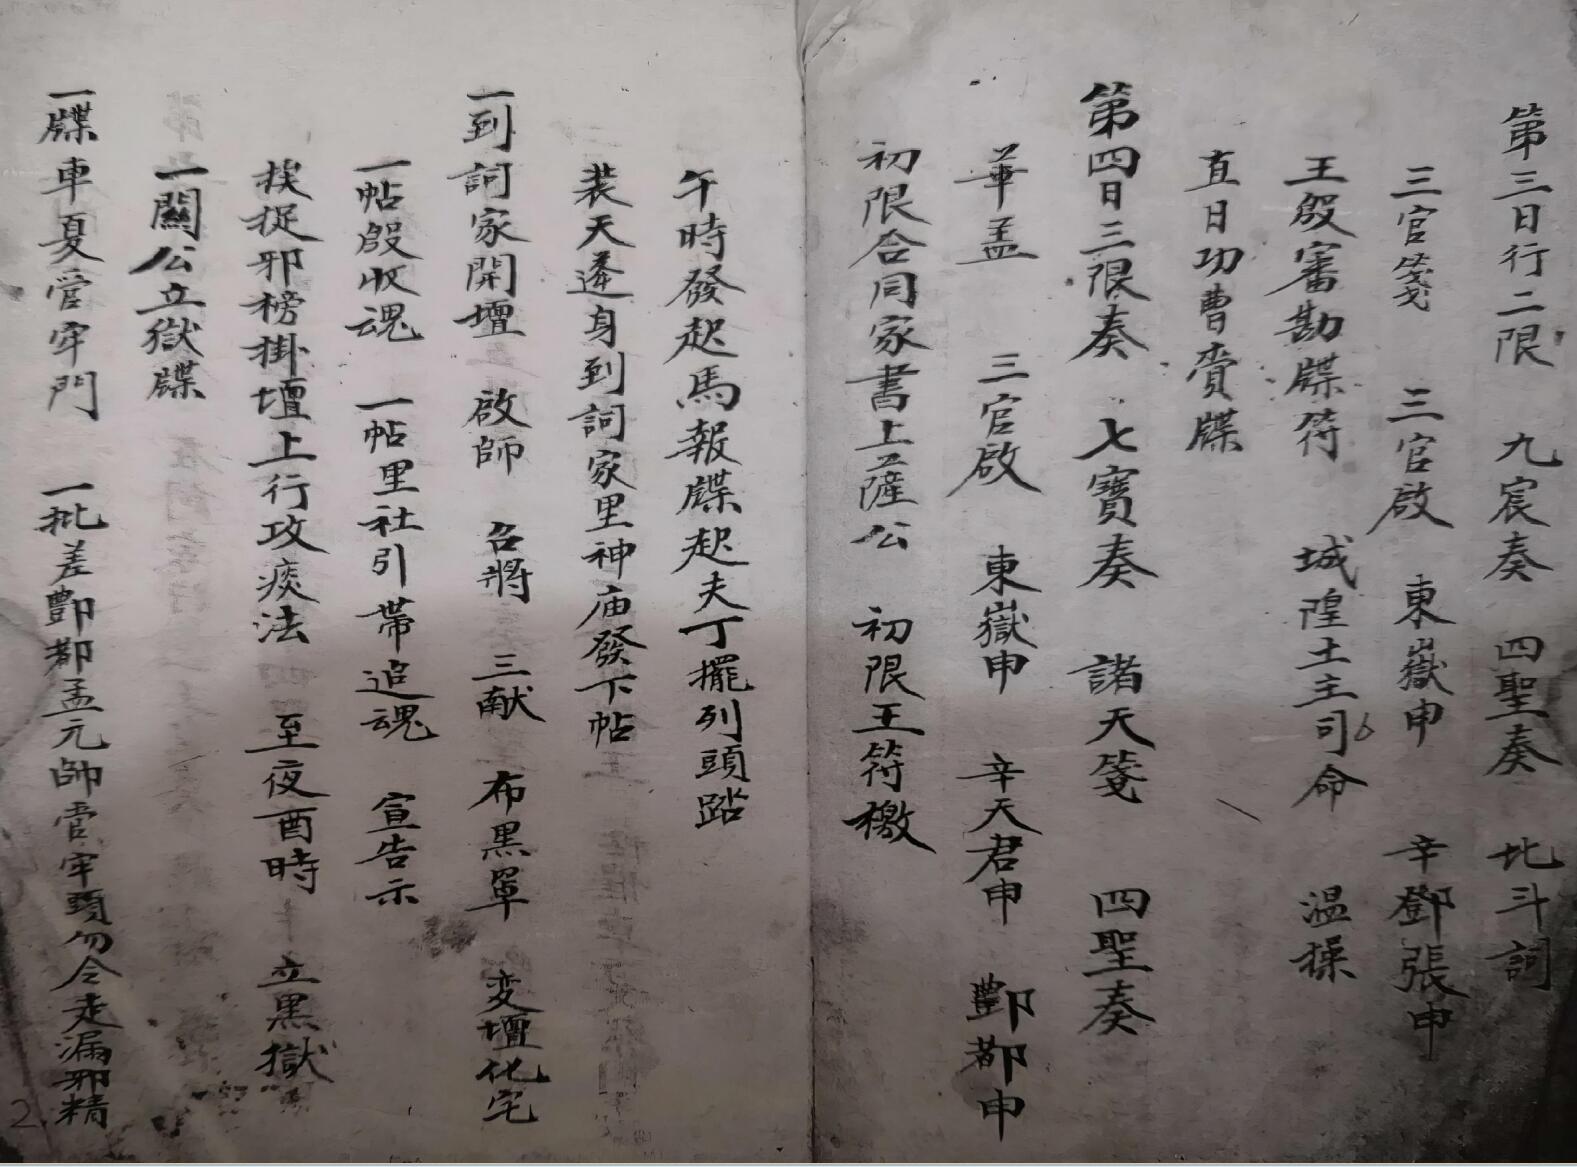 第三日行二限 九宸奏 四聖奏 北斗詞
三官箋 三官啟 東嶽申 辛鄧張申
王殷審勘牒符 城隍土主司命 温操
直日功曹賫牒
第四日三限奏 七寶奏 諸天箋 四聖奏
華盖 三官啟 東嶽申 辛天君申 酆都申
初限合同家書上薩公 初限王符檄
午時發起馬報牒起夫丁擺列頭踏
裝天蓬身到詞家里神庙發下帖
一到詞家開壇 啟師 召將 三献 布黑罩 变壇化宅
一帖殷收魂 一帖里社引带追魂 宣告示
挨捉邪榜掛壇上行攻痰法 至夜酉時 立黑獄
一關公立獄牒
一牒車夏管牢門 一批差酆都孟元帥管牢頭勿令走漏邪精
2